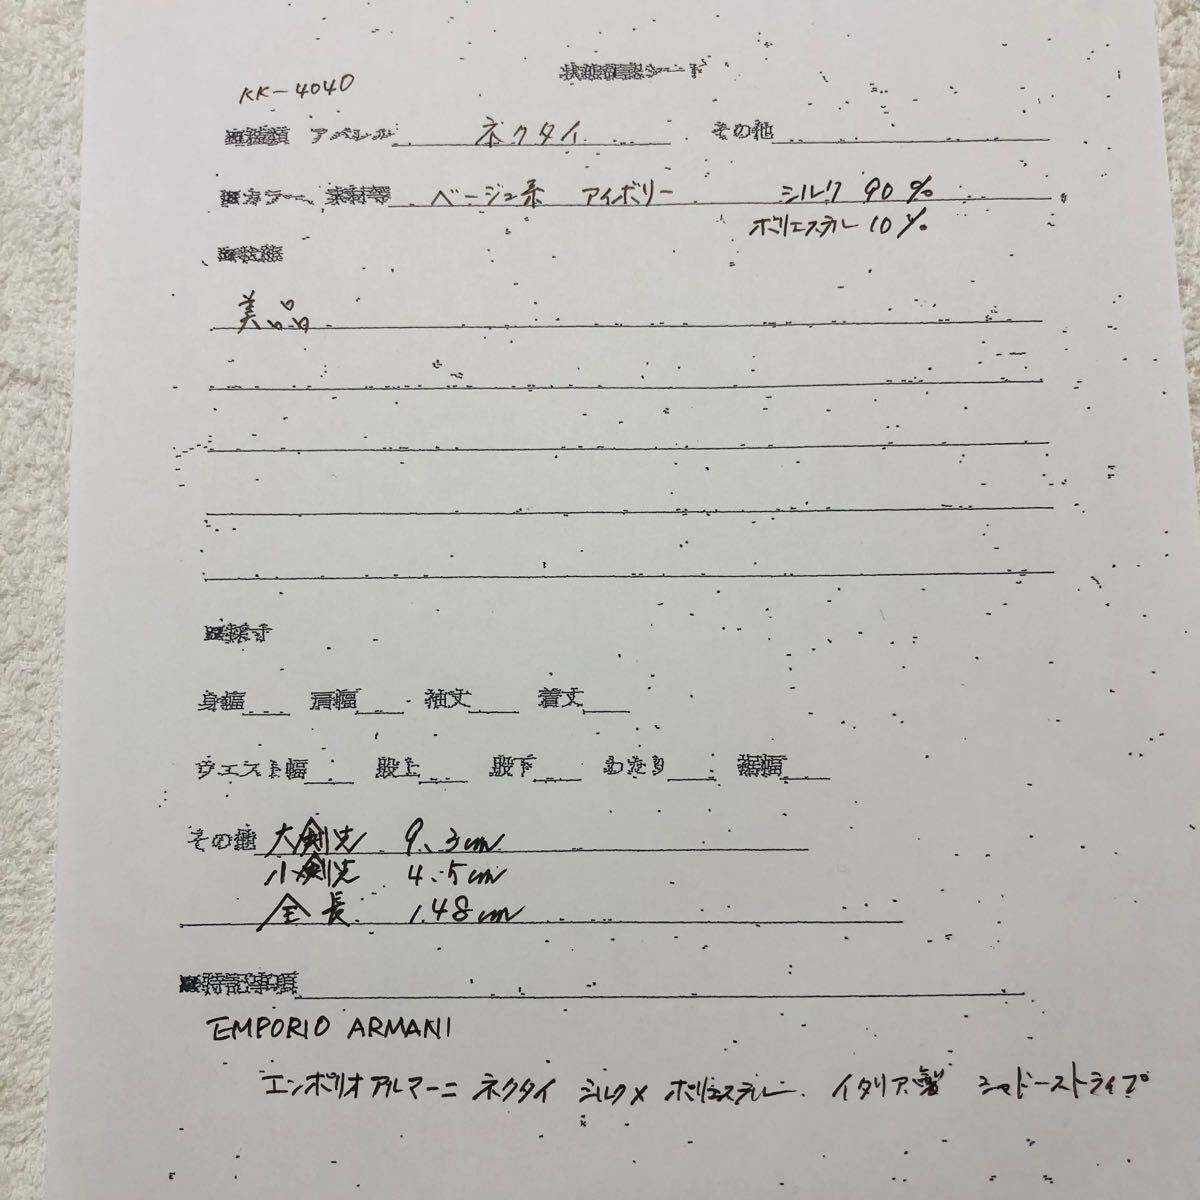 状態確認シート
KK-4040
■種類 アパレル ネクタイ その他
■カラー、素材等 ベージュ系 アイボリー シルク 90%
ポリエステル 10%
■状態
美品
■採寸
身幅 肩幅 袖丈 着丈
ウエスト幅 股上 股下 わたり 裾幅
その他 大剣先 9.3cm
小剣先 4.5cm
全長 148cm
■特記事項
EMPORIO ARMANI
エンポリオアルマーニ ネクタイ シルク× ポリエステル イタリア製 シャドーストライプ